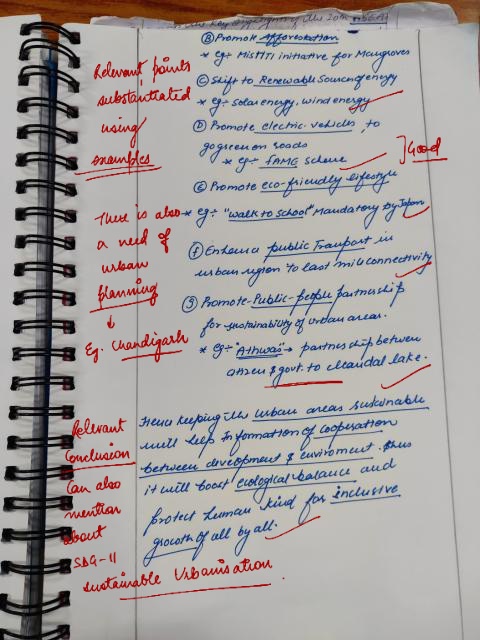 on the key
of the 20th
(B) Promote Afforestation
* eg:- MISHTI initiative for Mangroves
(C) Shift to Renewable Sources of energy
* eg:- solar energy, wind energy
(D) Promote electric vehicles, to
go green on roads
* eg:- FAME scheme
Good
(E) Promote eco-friendly lifestyle
* eg:- "walk to school" Mandatory by Japan
(F) Enhance public Transport in
urban region to last mile connectivity
(g) Promote-Public-people partnership
for sustainability of urban areas.
* eg:- "Athwas" → partnership between
citizen & govt. to Mandal lake.
Hence keeping the urban areas sustainable
will help in formation of cooperation
between development & enviroment. thus
it will boost ecological balance and
protect human kind for inclusive
growth of all by all.
Relevant points
substantiated
using
examples
There is also
a need of
urban
planning
↓
Eg. Chandigarh
Relevant
Conclusion
Can also
mention
about
SDG-11
Sustainable Urbanisation.